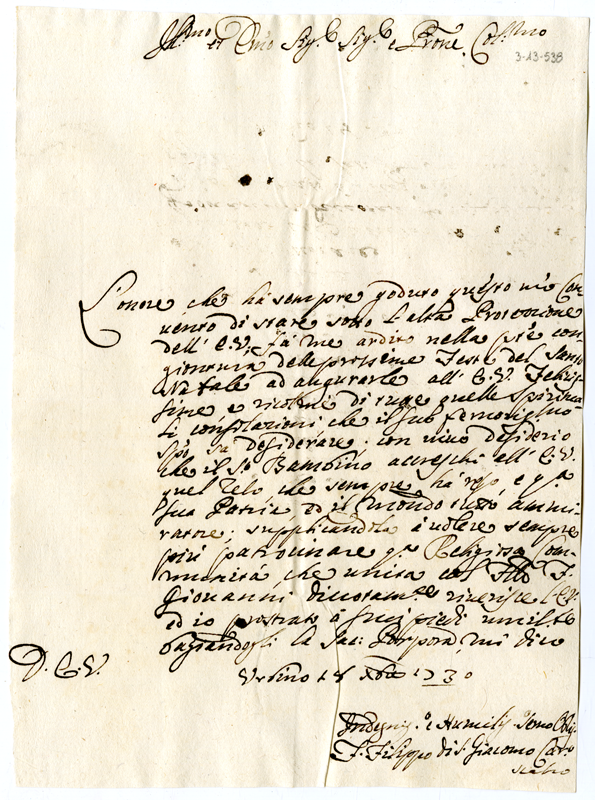 Ill.mo et Emo Sig.e Sig.e e Prone Col.mo
3-13-538
L'onore, che hà sempre goduto questo mio Con-
uento di stare sotto l'alta Protezione
dell' E.V., fà me ardito nella pnte con-
giontura delle prossime Feste del Santo
Natale ad augurarle all' E.V. Felicis-
sime, e ricolme di tutte quelle Spiritua-
li consolazioni, che il suo
sà desiderare. con uiuo desiderio
che il So Bambino accreschi all' E.V.
quel Zelo, che sempre hà reso, e p.a
Sua Patria ed il Mondo tutto ammi-
ratore; supplicandola à uolere sempre
più patrocinare q.a Religiosa Com-
munità, che unita col F.
Giouanni diuotam.te riuerisce l'E.V.
ed io prostrato à suoi piedi umil.te
bagiandogli la Sac: Porpora, mi dico
D. E. V.
Urbino 18 Xbre 1730
Indegnis.o e Humilis. Seruo Obl.
F. Filippo di S. Giacomo Carm
scalzo